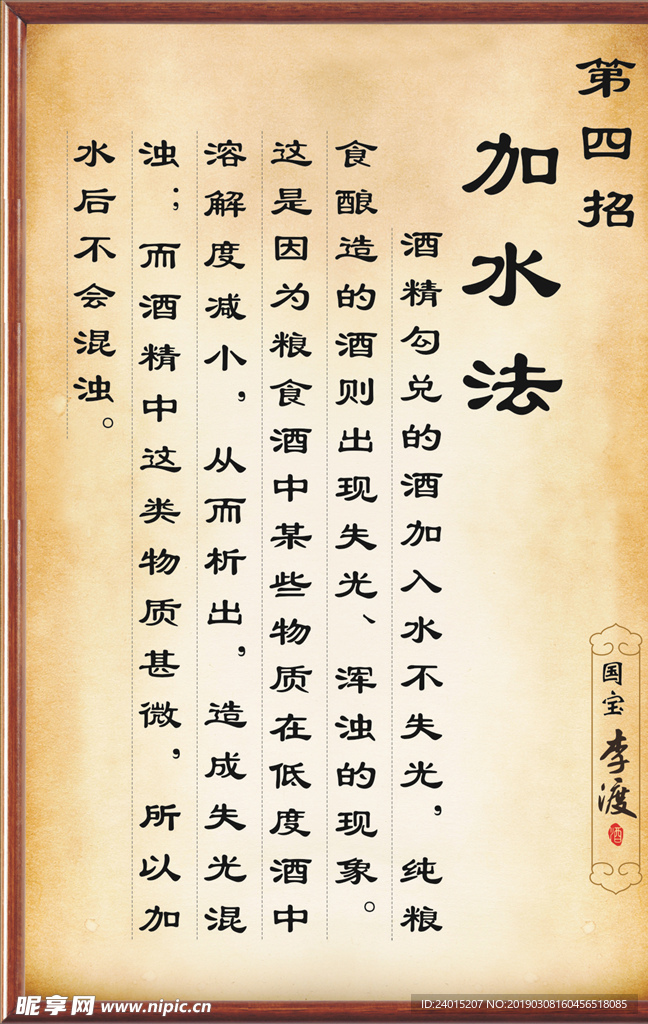 第四招
加水法
酒精勾兑的酒加入水不失光，纯粮
食酿造的酒则出现失光、浑浊的现象。
这是因为粮食酒中某些物质在低度酒中
溶解度减小，从而析出，造成失光混
浊；而酒精中这类物质甚微，所以加
水后不会混浊。
国宝李渡
酒
昵享网 www.nipic.cn
ID:24015207 NO:20190308160456518085